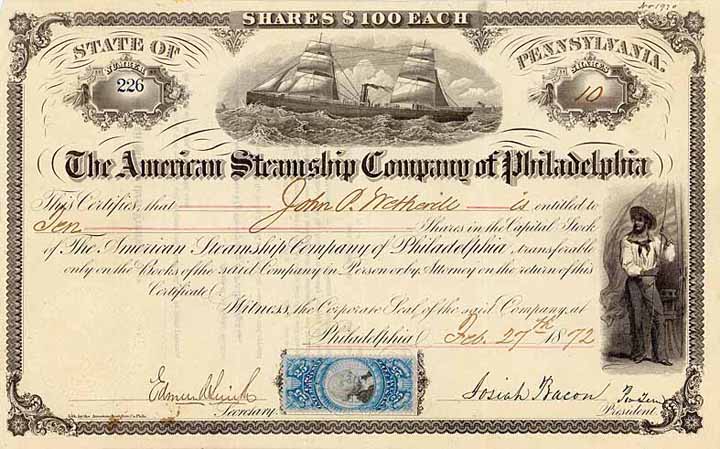 No 1970
SHARES $100 EACH
STATE OF PENNSYLVANIA.
NUMBER
226
SHARES
10
The American Steamship Company of Philadelphia
This Certifies, that John P. Wetherill is entitled to
Ten Shares in the Capital Stock
of The American Steamship Company of Philadelphia, transferable
only on the Books of the said Company in Person or by Attorney on the return of this
Certificate.
Witness, the Corporate Seal of the said Company, at
Philadelphia Feb. 27th 1872
Josiah Bacon
Secretary
President